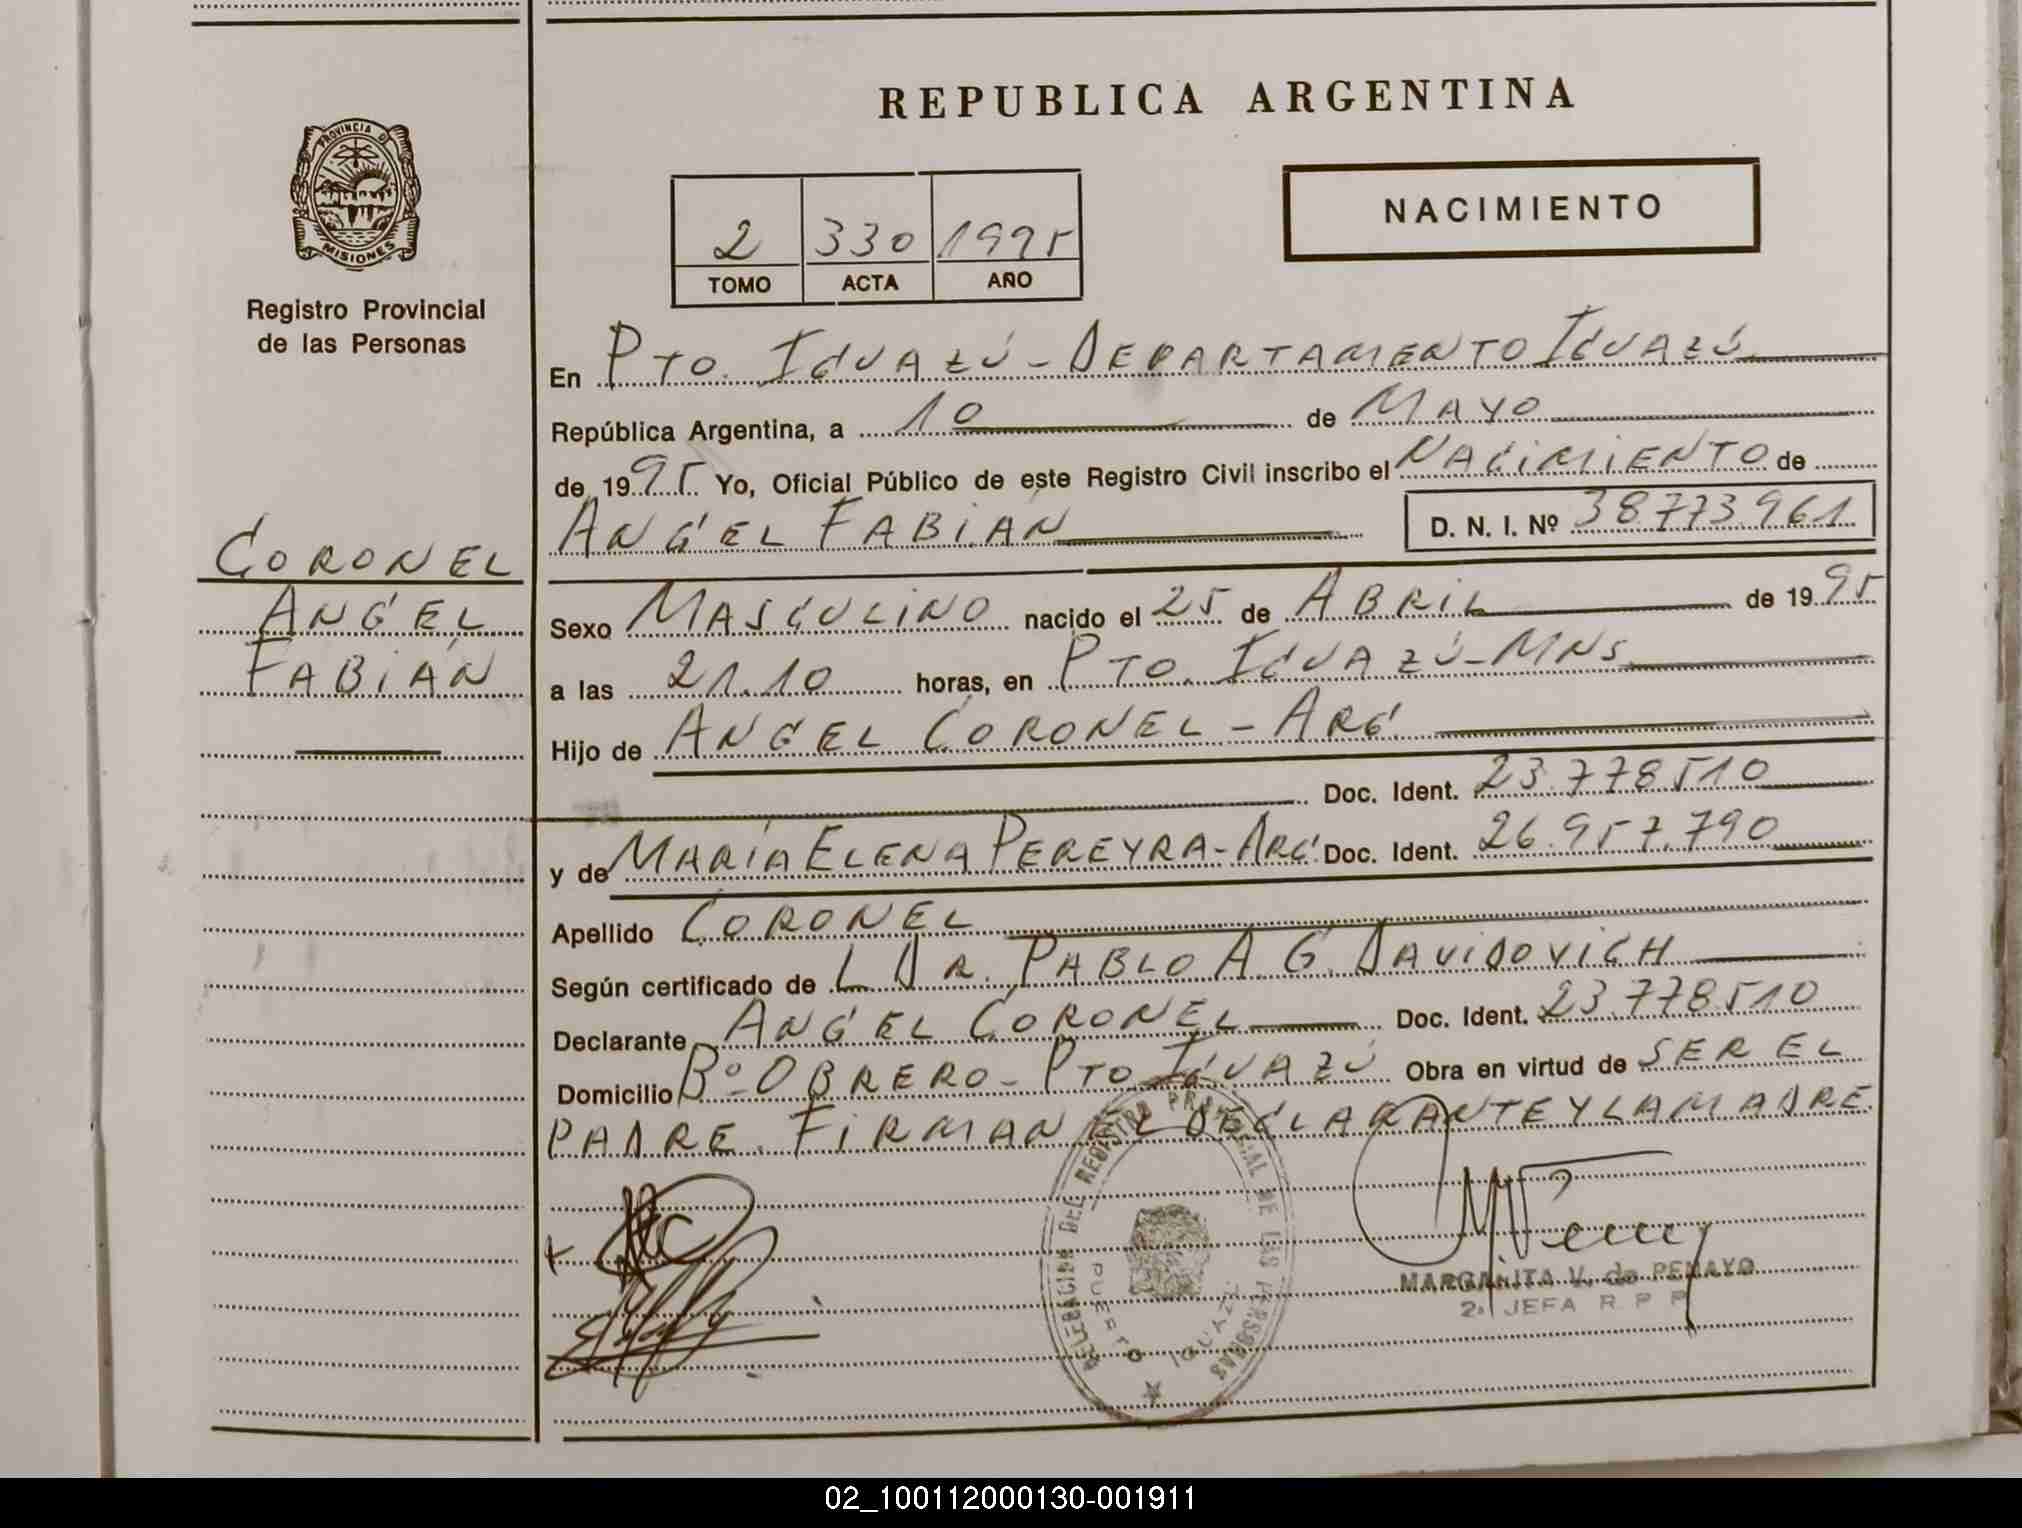 REPUBLICA ARGENTINA
PROVINCIA DE
MISIONES
Registro Provincial
de las Personas
NACIMIENTO
2 330 1995
TOMO ACTA AÑO
En PTO. IGUAZÚ - DEPARTAMENTO IGUAZÚ
República Argentina, a 10 de MAYO
de 1995 Yo, Oficial Público de este Registro Civil inscribo el NACIMIENTO de
ANGEL FABIAN D. N. I. Nº 38.773.961
CORONEL
ANGEL
FABIÁN
Sexo MASCULINO nacido el 25 de ABRIL de 1995
a las 21.10 horas, en PTO. IGUAZÚ - MNS
Hijo de ANGEL CORONEL - ARG.
Doc. Ident. 23.778.510
y de MARÍA ELENA PEREYRA - ARG. Doc. Ident. 26.957.790
Apellido CORONEL
Según certificado de L DR. PABLO A. G. DAVIDOVICH
Declarante ANGEL CORONEL Doc. Ident. 23.778.510
Domicilio Bº OBRERO - PTO IGUAZÚ Obra en virtud de SER EL
PADRE. FIRMAN EL DECLARANTE Y LA MADRE.
DELEGACION DEL REGISTRO PROVINCIAL DE LAS PERSONAS
PUERTO IGUAZU
MARGARITA V. de PENAYO
2ª JEFA R P P
02_100112000130-001911